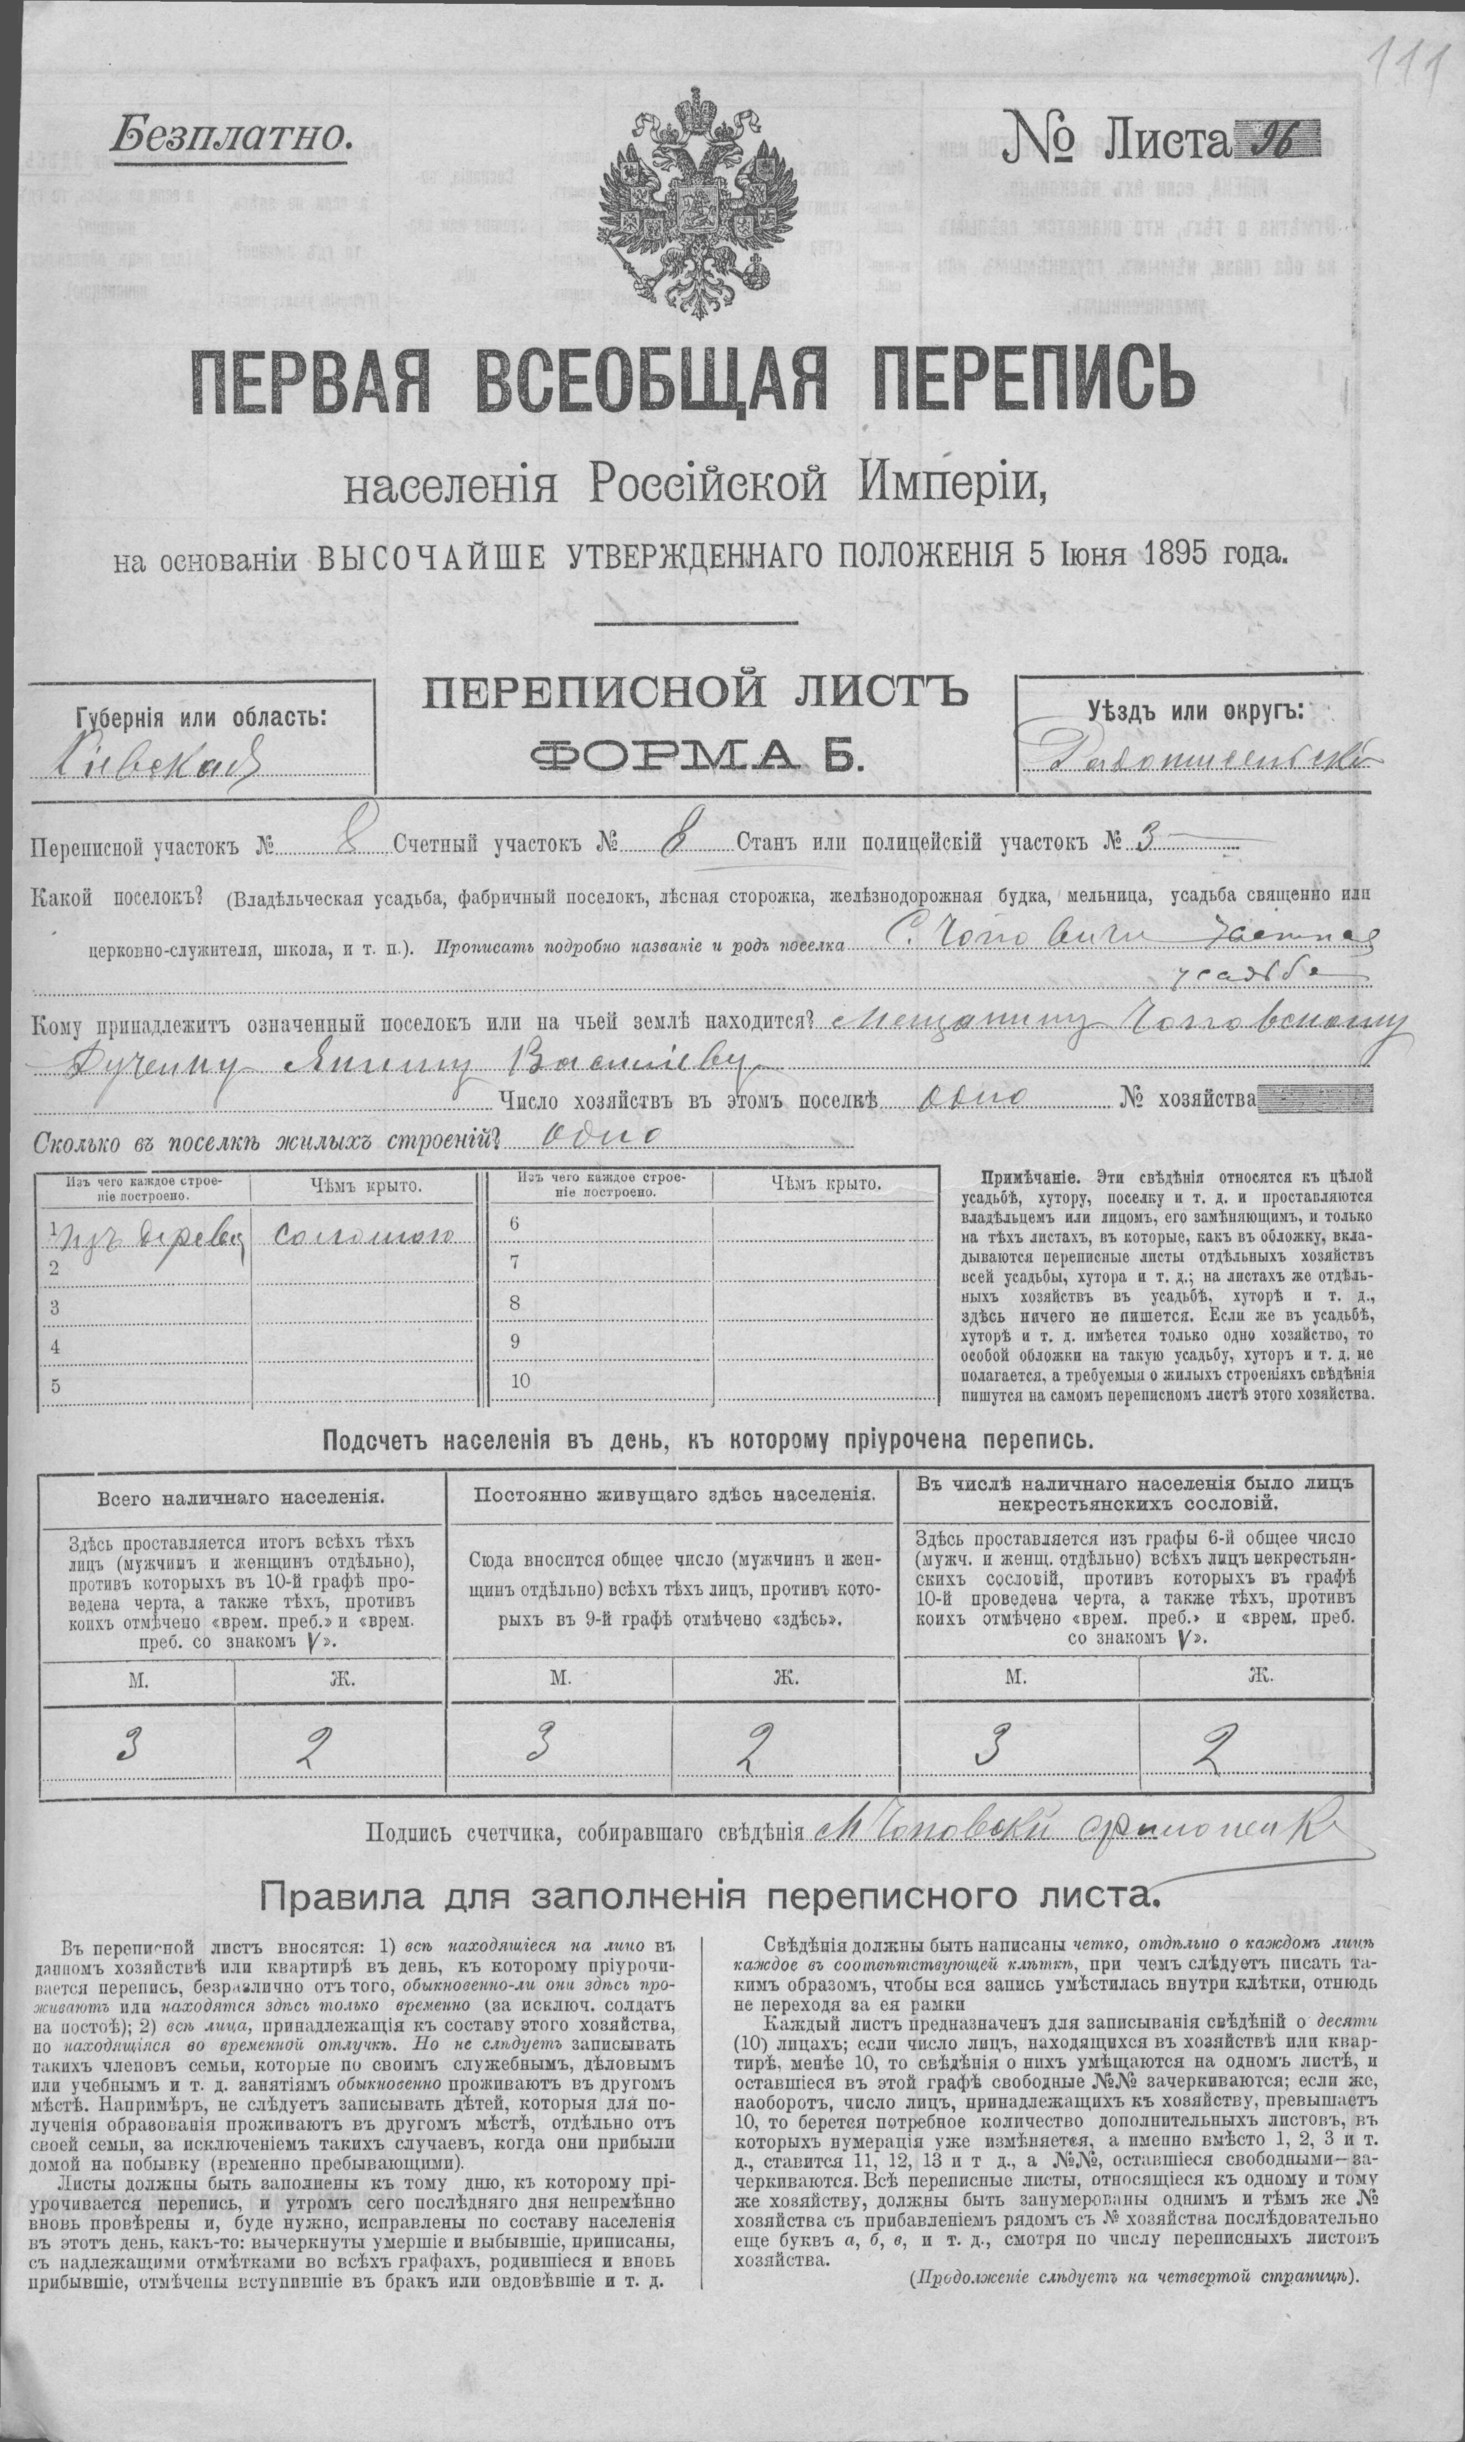 111
Безплатно.
№ Листа 96
ПЕРВАЯ ВСЕОБЩАЯ ПЕРЕПИСЬ
населенія Россійской Имперіи,
на основаніи ВЫСОЧАЙШЕ УТВЕРЖДЕННАГО ПОЛОЖЕНІЯ 5 Іюня 1895 года.
ПЕРЕПИСНОЙ ЛИСТЪ
ФОРМА Б.
Губернія или область:
Кіевская
Уѣздъ или округъ:
Радомысльскій
Переписной участокъ № 8 Счетный участокъ № 8 Станъ или полицейскій участокъ № 3
Какой поселокъ? (Владѣльческая усадьба, фабричный поселокъ, лѣсная сторожка, желѣзнодорожная будка, мельница, усадьба священно или
церковно-служителя, школа, и т. п.). Прописать подробно названіе и родъ поселка С. Чоповичи частная
усадьба
Кому принадлежитъ означенный поселокъ или на чьей землѣ находится? Мещанину Чоповскому
Васильеву
Число хозяйствъ въ этомъ поселкѣ одно № хозяйства
Сколько въ поселкѣ жилыхъ строеній? одно
Изъ чего каждое строе-
ніе построено.
Чѣмъ крыто.
Изъ чего каждое строе-
ніе построено.
Чѣмъ крыто.
1 Изъ дерева соломою
2
3
4
5
6
7
8
9
10
Примѣчаніе. Эти свѣдѣнія относятся къ цѣлой
усадьбѣ, хутору, поселку и т. д. и проставляются
владѣльцемъ или лицомъ, его замѣняющимъ, и только
на тѣхъ листахъ, въ которые, какъ въ обложку, вкла-
дываются переписные листы отдѣльныхъ хозяйствъ
всей усадьбы, хутора и т. д.; на листахъ же отдѣль-
ныхъ хозяйствъ въ усадьбѣ, хуторѣ и т. д.,
здѣсь ничего не пишется. Если же въ усадьбѣ,
хуторѣ и т. д. имѣется только одно хозяйство, то
особой обложки на такую усадьбу, хуторъ и т. д. не
полагается, а требуемыя о жилыхъ строеніяхъ свѣдѣнія
пишутся на самомъ переписномъ листѣ этого хозяйства.
Подсчетъ населенія въ день, къ которому пріурочена перепись.
Всего наличнаго населенія.
Здѣсь проставляется итогъ всѣхъ тѣхъ
лицъ (мужчинъ и женщинъ отдѣльно),
противъ которыхъ въ 10-й графѣ про-
ведена черта, а также тѣхъ, противъ
коихъ отмѣчено «врем. преб.» и «врем.
преб. со знакомъ V».
М. Ж.
3 2
Постоянно живущаго здѣсь населенія.
Сюда вносится общее число (мужчинъ и жен-
щинъ отдѣльно) всѣхъ тѣхъ лицъ, противъ кото-
рыхъ въ 9-й графѣ отмѣчено «здѣсь».
М. Ж.
3 2
Въ числѣ наличнаго населенія было лицъ
некрестьянскихъ сословій.
Здѣсь проставляется изъ графы 6-й общее число
(мужч. и женщ. отдѣльно) всѣхъ лицъ некрестьян-
скихъ сословій, противъ которыхъ въ графѣ
10-й проведена черта, а также тѣхъ, противъ
коихъ отмѣчено «врем. преб.» и «врем. преб.
со знакомъ V».
М. Ж.
3 2
Подпись счетчика, собиравшаго свѣдѣнія М Чоповскій
Правила для заполненія переписного листа.
Въ переписной листъ вносятся: 1) всѣ находящіеся на лицо въ
данномъ хозяйствѣ или квартирѣ въ день, къ которому пріурочи-
вается перепись, безразлично отъ того, обыкновенно-ли они здѣсь про-
живаютъ или находятся здѣсь только временно (за исключ. солдатъ
на постоѣ); 2) всѣ лица, принадлежащія къ составу этого хозяйства,
но находящіяся во временной отлучкѣ. Но не слѣдуетъ записывать
такихъ членовъ семьи, которые по своимъ служебнымъ, дѣловымъ
или учебнымъ и т. д. занятіямъ обыкновенно проживаютъ въ другомъ
мѣстѣ. Напримѣръ, не слѣдуетъ записывать дѣтей, которыя для по-
лученія образованія проживаютъ въ другомъ мѣстѣ, отдѣльно отъ
своей семьи, за исключеніемъ такихъ случаевъ, когда они прибыли
домой на побывку (временно пребывающими).
Листы должны быть заполнены къ тому дню, къ которому прі-
урочивается перепись, и утромъ сего послѣдняго дня непремѣнно
вновь провѣрены и, буде нужно, исправлены по составу населенія
въ этотъ день, какъ-то: вычеркнуты умершіе и выбывшіе, приписаны,
съ надлежащими отмѣтками во всѣхъ графахъ, родившіеся и вновь
прибывшіе, отмѣчены вступившіе въ бракъ или овдовѣвшіе и т. д.
Свѣдѣнія должны быть написаны четко, отдѣльно о каждомъ лицѣ
каждое въ соотвѣтствующей клѣткѣ, при чемъ слѣдуетъ писать та-
кимъ образомъ, чтобы вся запись умѣстилась внутри клѣтки, отнюдь
не переходя за ея рамки
Каждый листъ предназначенъ для записыванія свѣдѣній о десяти
(10) лицахъ; если число лицъ, находящихся въ хозяйствѣ или квар-
тирѣ, менѣе 10, то свѣдѣнія о нихъ умѣщаются на одномъ листѣ, и
оставшіеся въ этой графѣ свободные №№ зачеркиваются; если же,
наоборотъ, число лицъ, принадлежащихъ къ хозяйству, превышаетъ
10, то берется потребное количество дополнительныхъ листовъ, въ
которыхъ нумерація уже измѣняется, а именно вмѣсто 1, 2, 3 и т.
д., ставится 11, 12, 13 и т д., а №№, оставшіеся свободными—за-
черкиваются. Всѣ переписные листы, относящіеся къ одному и тому
же хозяйству, должны быть занумерованы однимъ и тѣмъ же №
хозяйства съ прибавленіемъ рядомъ съ № хозяйства послѣдовательно
еще буквъ а, б, в, и т. д., смотря по числу переписныхъ листовъ
хозяйства.
(Продолженіе слѣдуетъ на четвертой страницѣ).